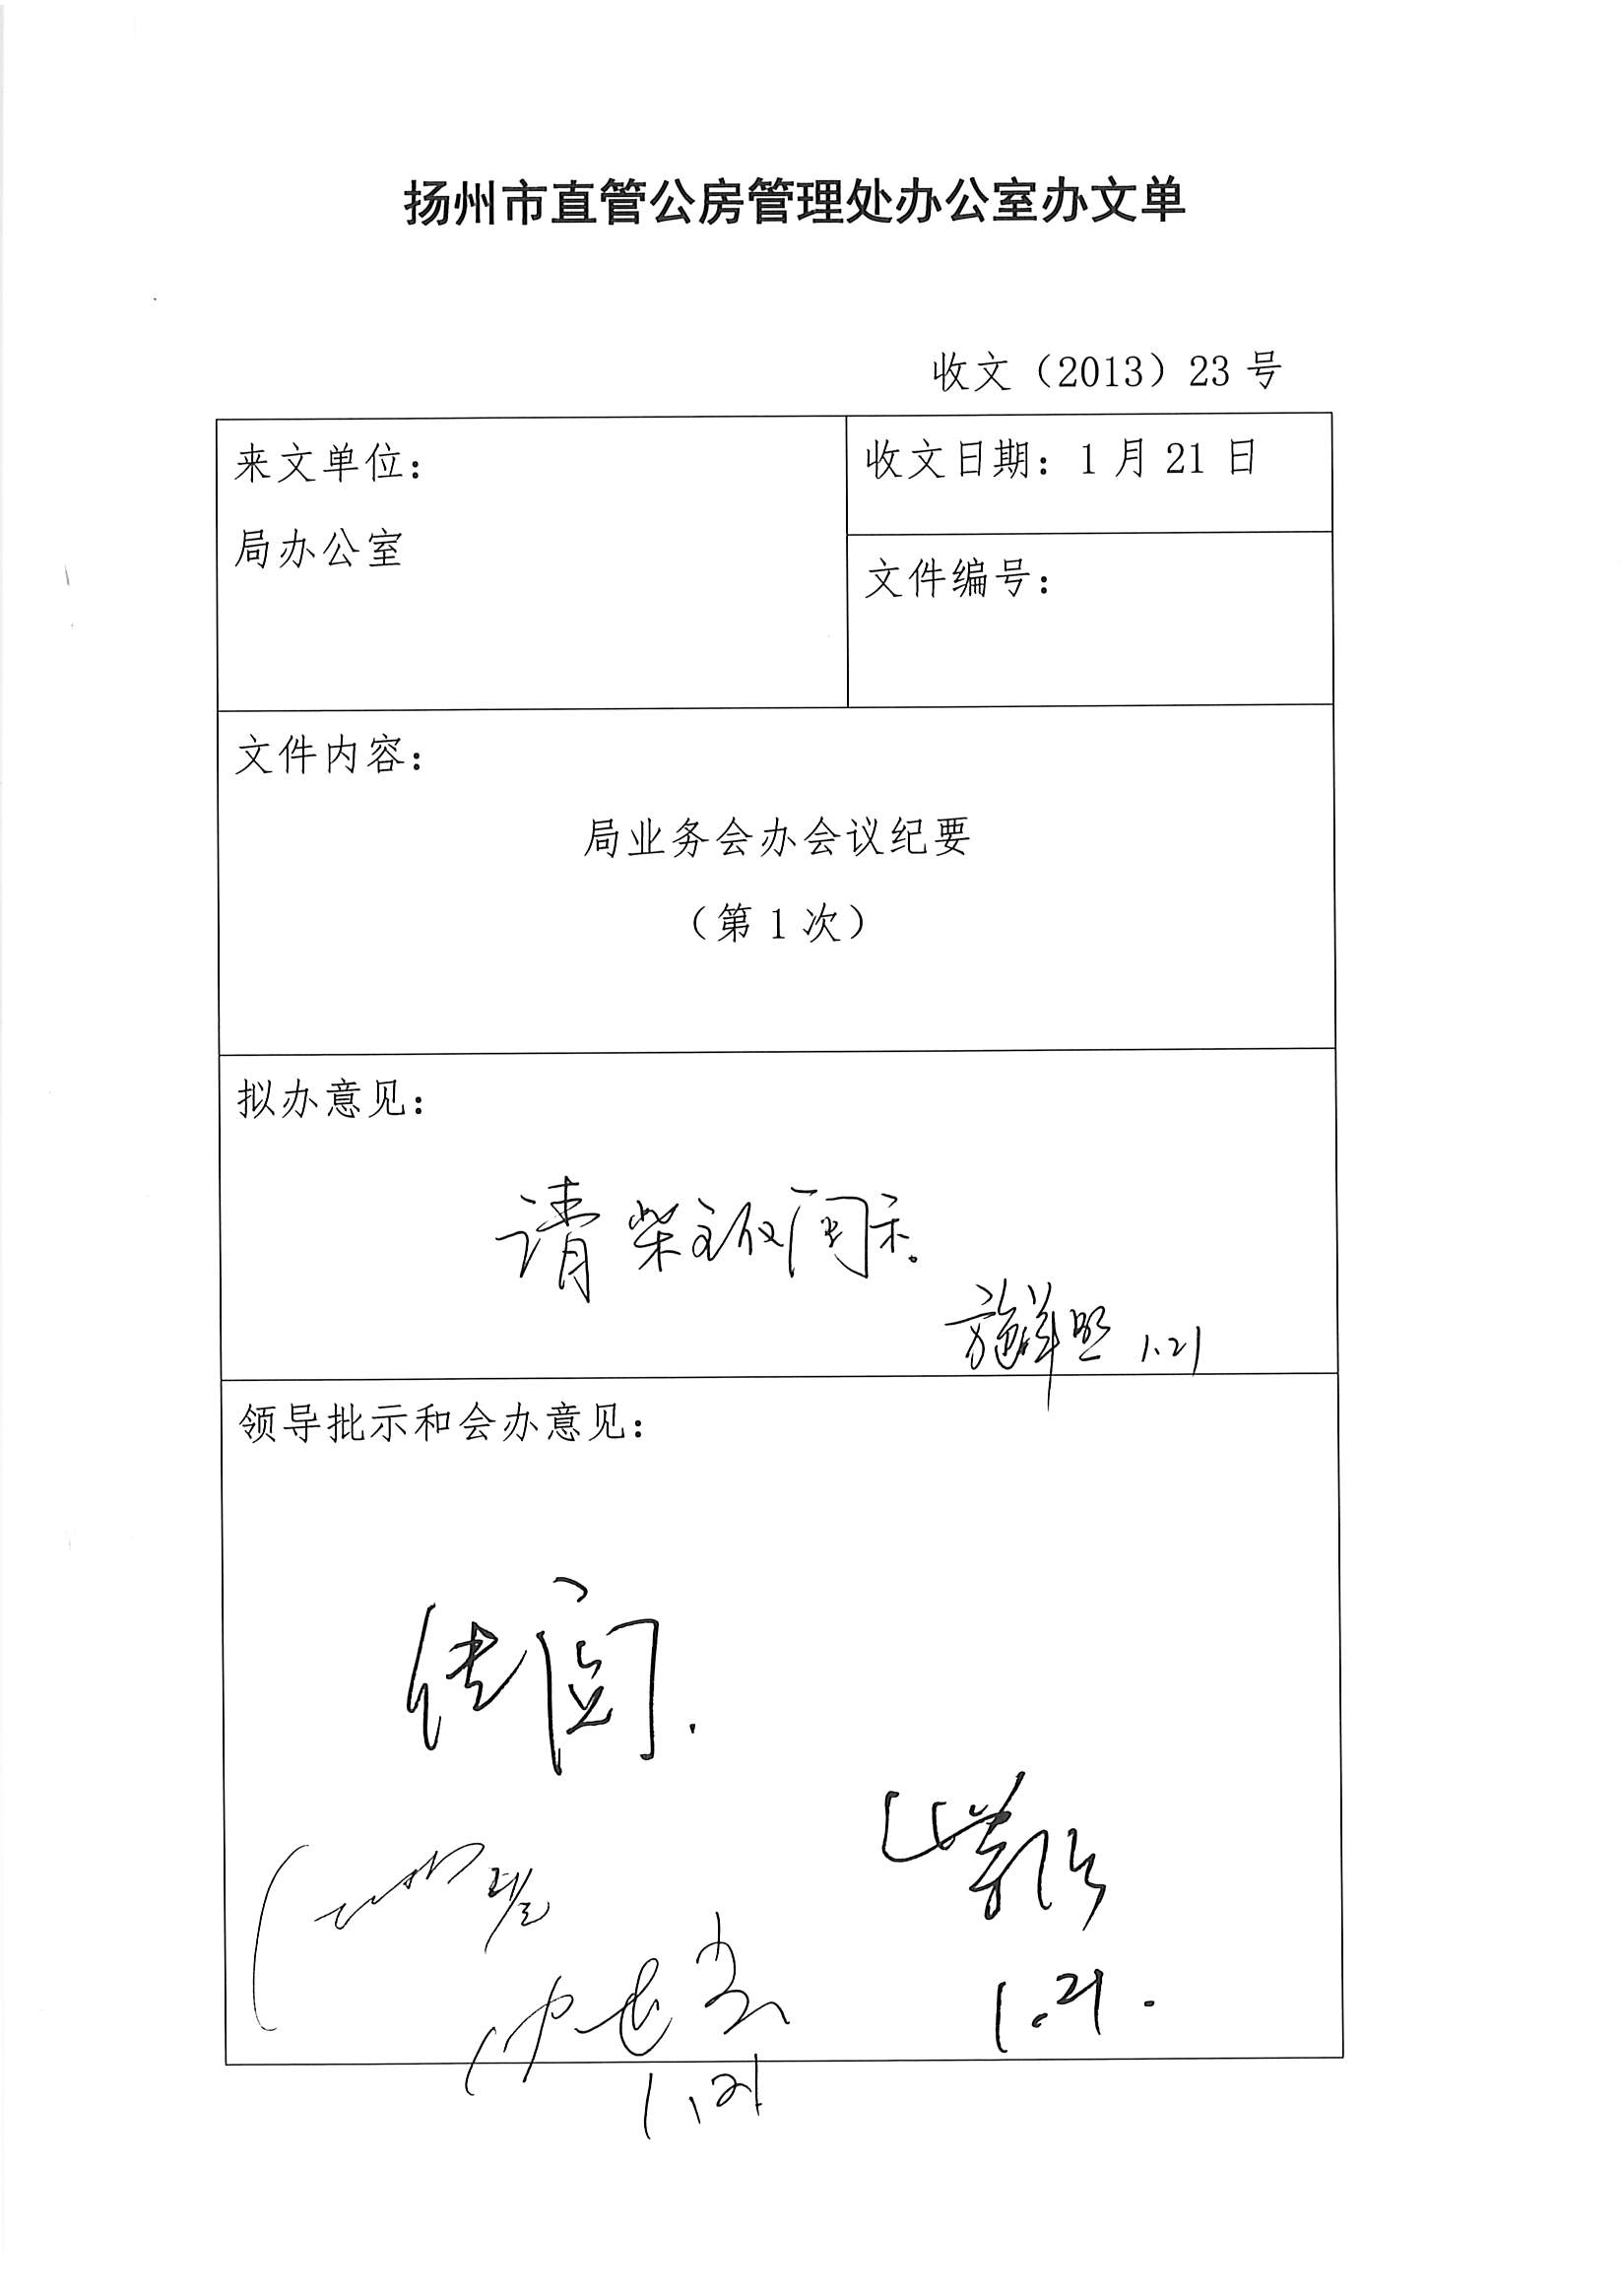 扬州市直管公房管理处办公室办文单
收文（2013）23 号
来文单位：
局办公室
收文日期：1 月 21 日
文件编号：
文件内容：
局业务会办会议纪要
（第 1 次）
拟办意见：
请柴主任阅示。
1.21
领导批示和会办意见：
传阅.
1.21.
1.21